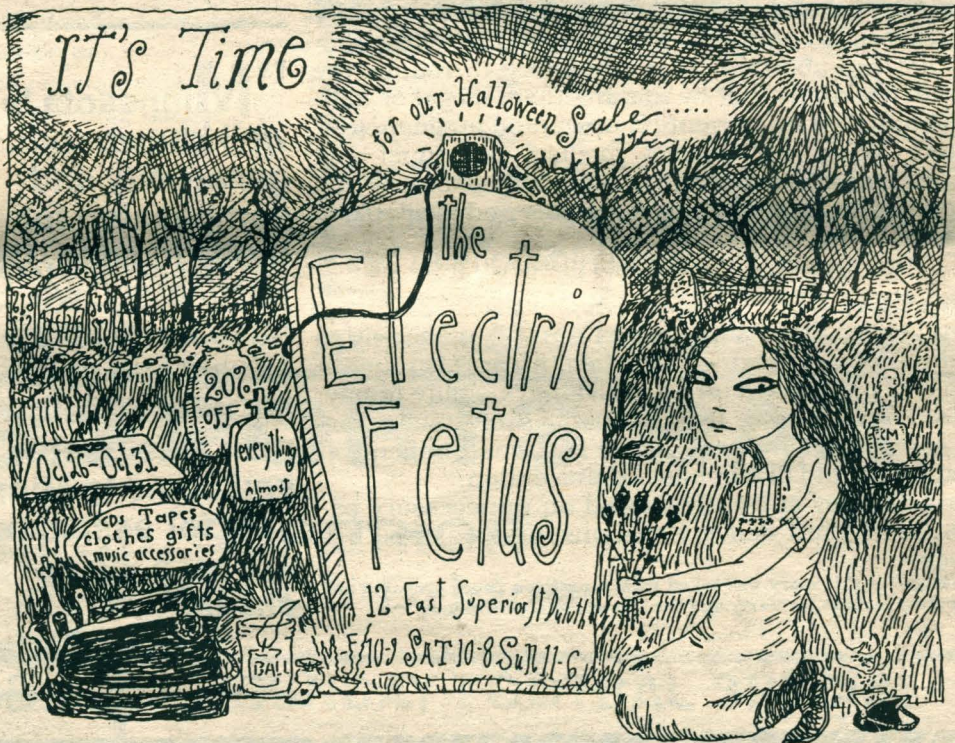 It's Time
for our Halloween Sale......
the
Electric
Fetus
20%
OFF
everything
Almost
Oct 26-Oct 31
CDs Tapes
clothes gifts
music accessories
12 East Superior St Duluth
M-F 10-9 SAT 10-8 Sun 11-6
BALL
KM